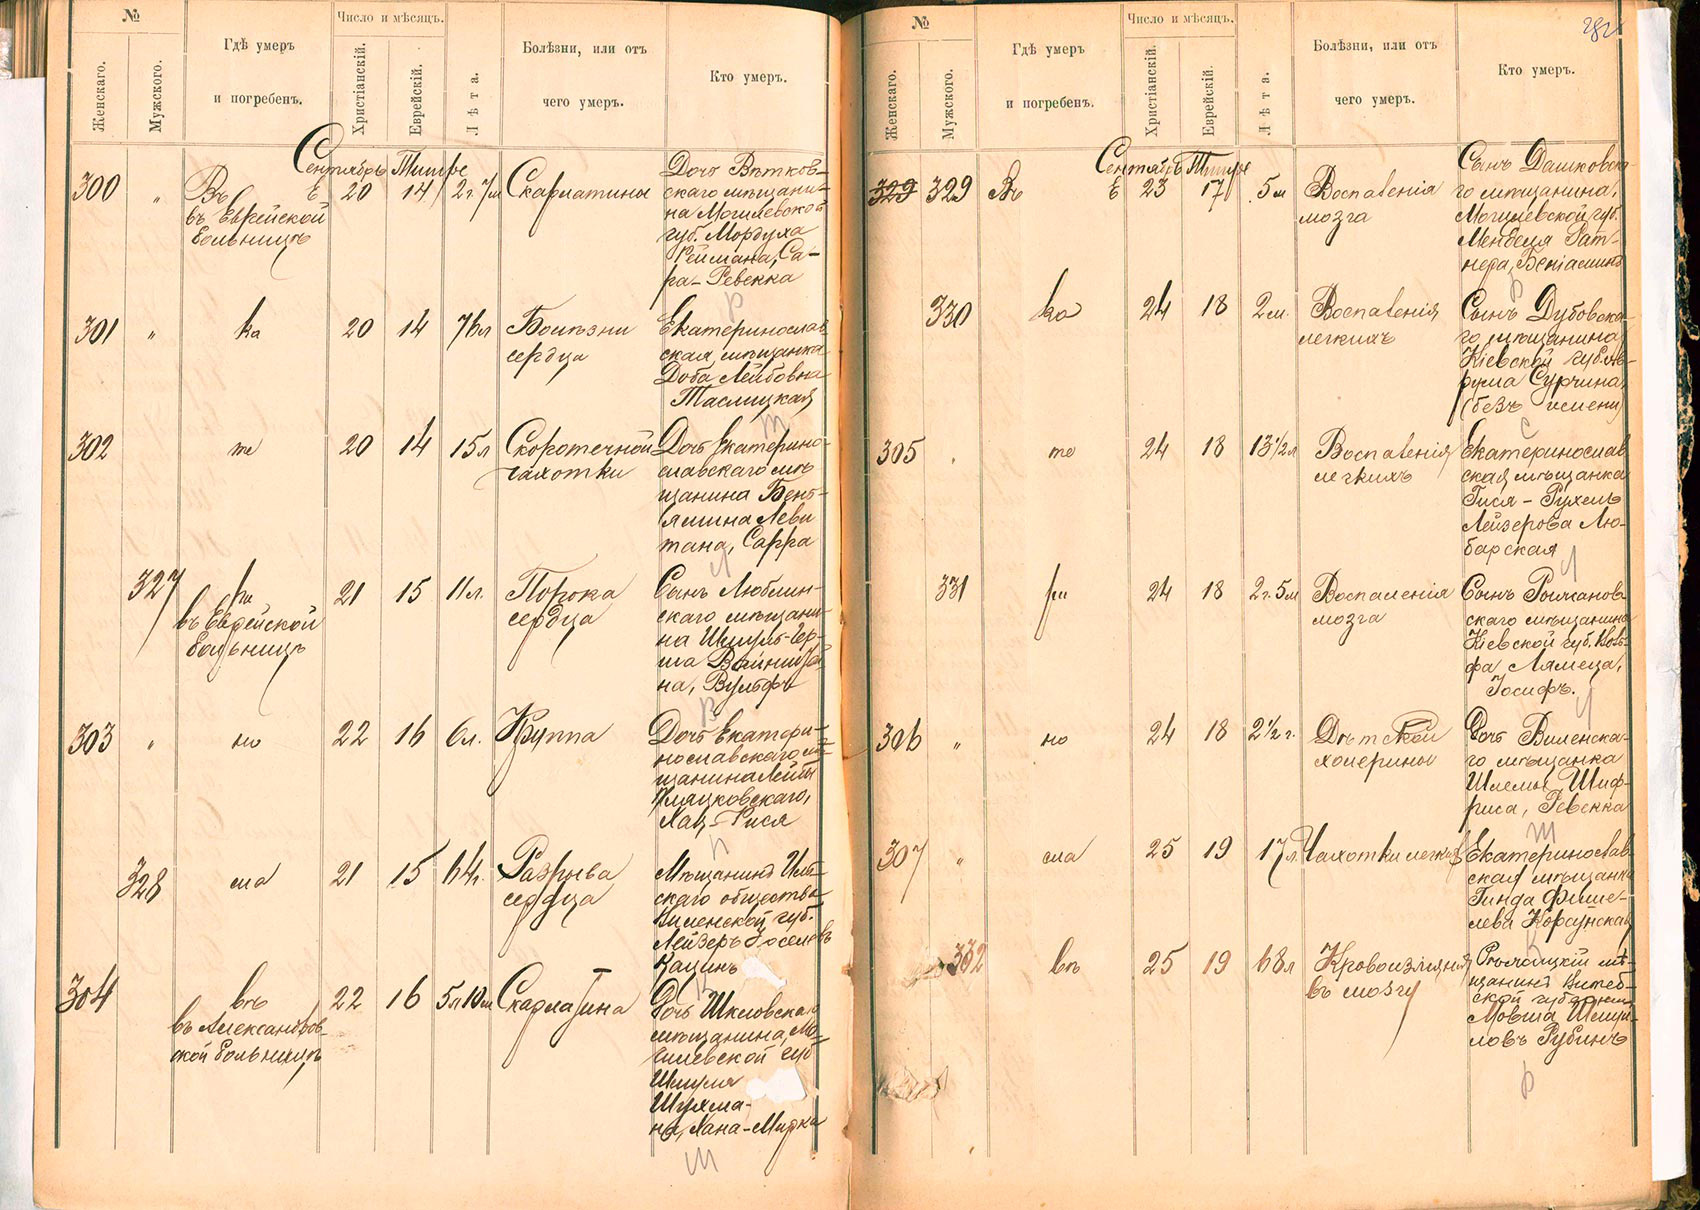 №
Число и мѣсяцъ.
Женскаго.
Мужского.
Гдѣ умеръ
и погребенъ.
Христіанскій.
Еврейскій.
Лѣта.
Болѣзни, или отъ
чего умеръ.
Кто умеръ.
Сентябрь Тишре
300 „ Въ Е 20 14 2г 7м Скарлатины
въ Еврейской
больницѣ
Дочь Вѣтков-
скаго мѣщани-
на Могилевской
губ. Мордуха
Реймана, Са-
ра-Ревекка
р
301 „ ка 20 14 76л Болѣзни
сердца
Екатеринослав
ская мѣщанка
Доба Лейбовна
Таслицкая
т
302 те 20 14 15л Скоротечной
чахотки
Дочь Екатерино-
славскаго мѣ
щанина Бень-
ямина Леви
тана, Сарра
л
327 ри 21 15 11л. Порока
сердца
въ Еврейской
больницѣ
Сынъ Люблин-
скаго мѣщани-
на Шмуль-Гер-
ша
на, Вульфъ
в
303 „ но 22 16 6л. Круппа
Дочь Екатери-
нославскаго мѣ-
щанина Лейбы
Кляцковскаго,
Хая-Рися
п
328 сла 21 15 64г. Разрыва
сердца
Мѣщанинъ
скаго общества
Виленской губ.
Лейзеръ Іоселевъ
Кацинъ
к
304 въ 22 16 5л 10м Скарлатина
въ Александров-
ской больницѣ
Дочь Шкловскаго
мѣщанина, Мо-
гилевской губ
Шмуля
Шухма-
на, Хана-Мирка
ш
№
Число и мѣсяцъ.
Женскаго.
Мужского.
Гдѣ умеръ
и погребенъ.
Христіанскій.
Еврейскій.
Лѣта.
Болѣзни, или отъ
чего умеръ.
Кто умеръ.
Сентябрь Тишре
329 329 Въ Е 23 17 5м Воспаленія
мозга
Сынъ Дашковска-
го мѣщанина,
Могилевской губ.
Менделя Рат-
нера, Беніаминъ
р
330 ка 24 18 2м. Воспаленія
легкихъ
Сынъ Дубовска-
го мѣщанина
Кіевской губ. Ав-
рума Сурчина,
(безъ имени)
с
305 „ те 24 18 13 1/2 л Воспаленія
легкихъ
Екатеринослав
ская мѣщанка
Гися-Рухель
Лейзерова Лю-
барская
л
331 ри 24 18 2г. 5м Воспаленія
мозга
Сынъ
скаго мѣщанина
Кіевской губ. Воль-
фа Лямеца,
Іосифъ.
л
306 „ но 24 18 2 1/2 г. Дѣтской
холерины
Дочь Виленска-
го мѣщанка
Шлемы Шиф-
риса, Ревекка
ш
307 „ сла 25 19 17л. Чахотки легкихъ
Екатеринослав
ская мѣщанка
Гинда Фише-
лева Корсунская
к
332 въ 25 19 68л Кровоизліянія
въ мозгу
Рѣжицкій мѣ-
щанинъ Витеб-
ской губерніи
Мовша Шмуй-
ловъ Рубинъ
р